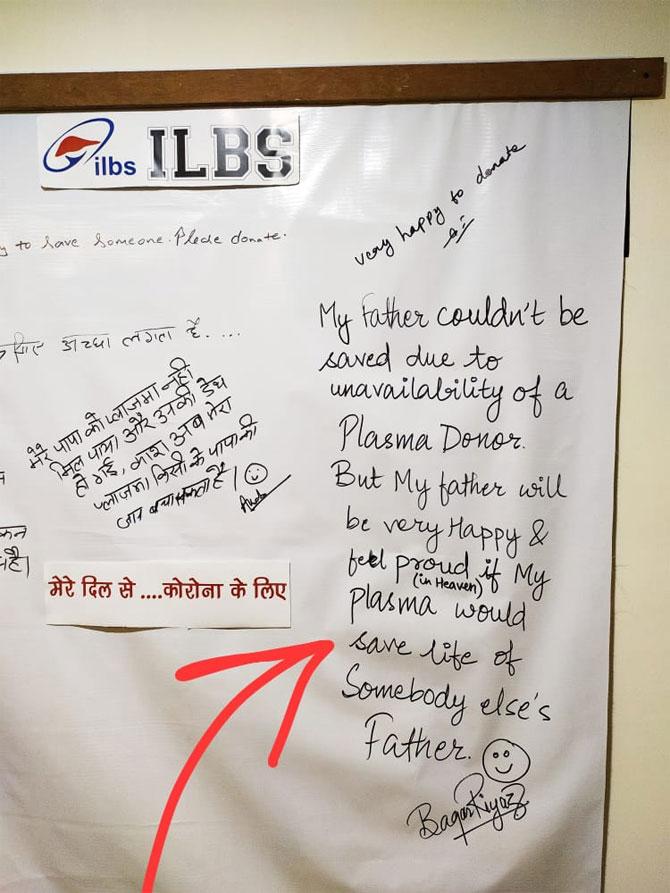 ilbs ILBS
very happy to donate
to save someone. Please donate.
My Father couldn't be
saved due to
unavailability of a
Plasma Donor.
But My father will
be very Happy &
feel proud if My
(in Heaven)
plasma would
save life of
Somebody else's
Father.
Baqar Riyaz
अच्छा लगता है. ...
मेरे पापा को प्लाजमा नहीं
मिल पाया और उनकी डेथ
हो गई, काश अब मेरा
प्लाजमा किसी के पापा की
जान बचा सकता है।
मेरे दिल से ....कोरोना के लिए